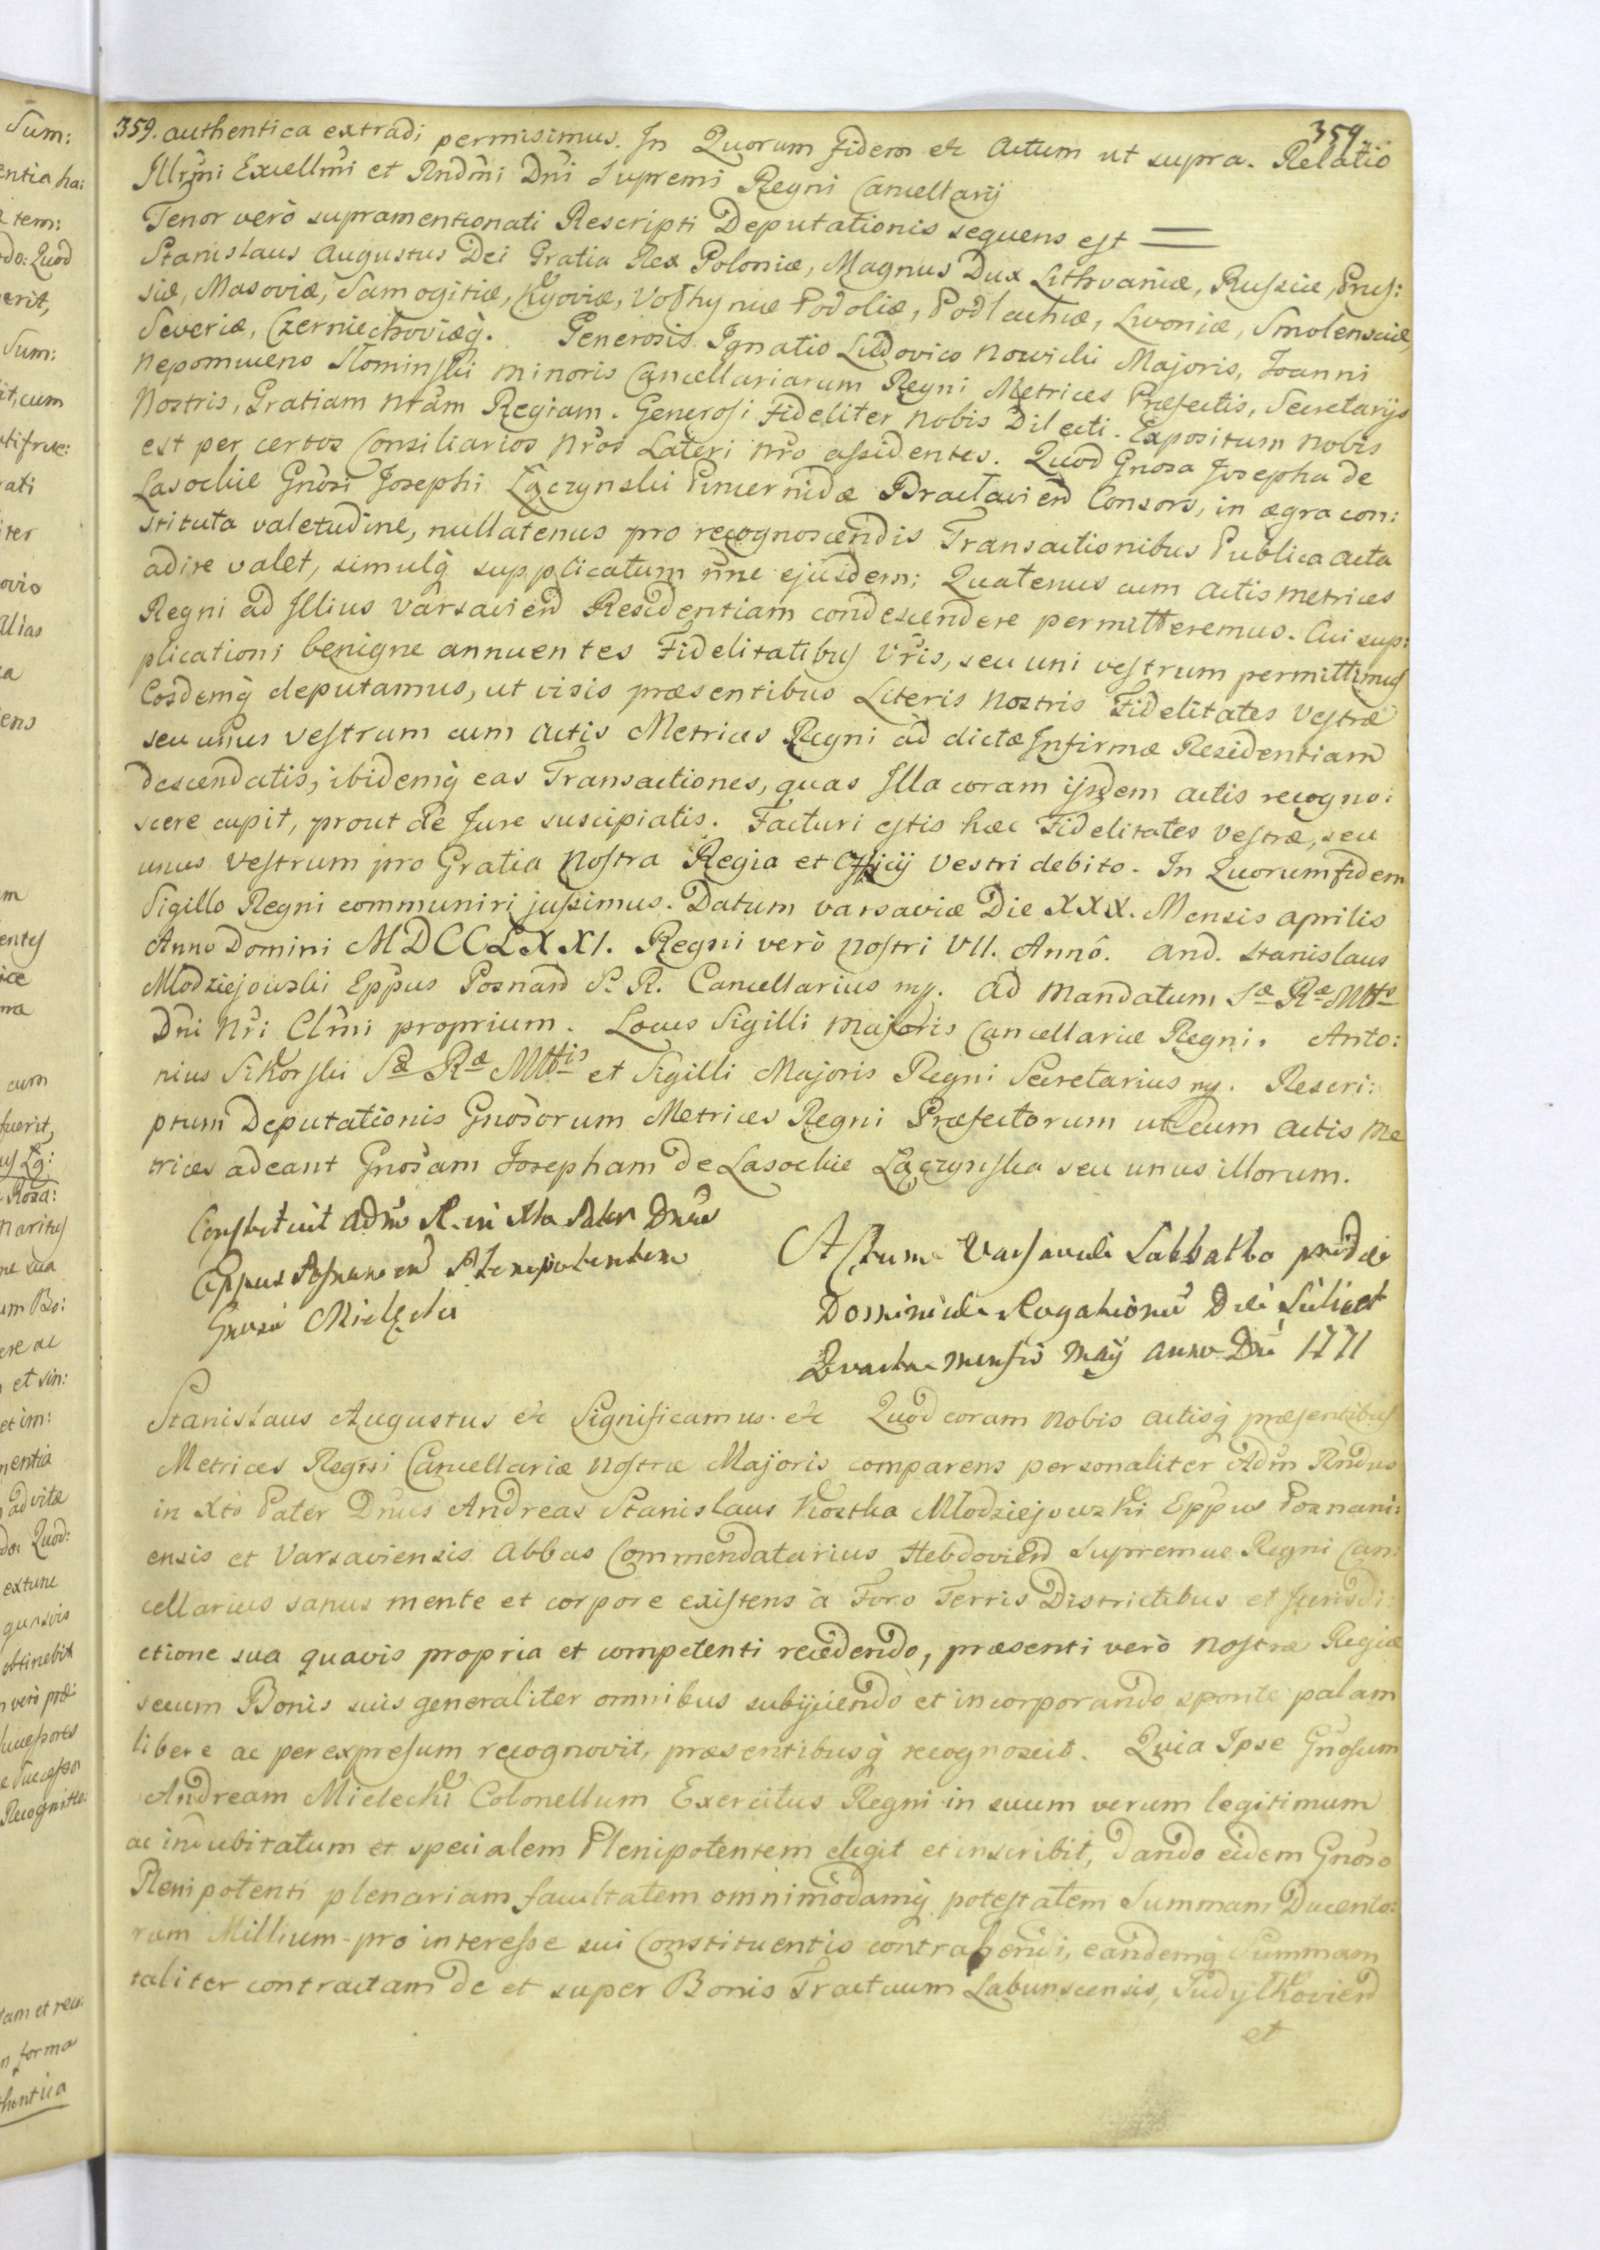 359. authentica extradi permisimus. In Quorum fidem etc Actum ut supra. Relatio
359
Illr̃mi Excellm̃i et Rndm̃i Dñi Supremi Regni Cancellarij
Tenor verò supramentionati Rescripti Deputationis sequens est
Stanislaus Augustus Dei Gratia Rex Poloniæ, Magnus Dux Lithvaniæ, Russiæ, Prus:
siæ, Masoviæ, Samogitiæ, Kyoviæ, Volhyniæ Podoliæ, Podlachiæ, Livoniæ, Smolensciæ,
Severiæ, Czerniechoviæq̀. Generosis Ignatio Ludovico Nowicki Majoris, Joanni
Nepomuceno Słominski Minoris Cancellariarum Regni Metrices Præfectis, Secretarijs
Nostris, Gratiam Nr̃am Regiam. Generosi Fideliter Nobis Dilecti. Expositum Nobis
est per certos Consiliarios Nr̃os Lateri Nr̃o assidentes. Quod Gnosa Josepha de
Lasockie Gñosi Josephi Łączynski Pincernidæ Bractavien̄ Consors, in ægra con:
stituta valetudine, nullatenus pro recognoscendis Transactionibus Publica Acta
adire valet, simulq̀ supplicatum ñne ejusdem; Quatenus cum Actis Metrices
Regni ad Illius Varsavien̄ Residentiam condescendere permitteremus. Cui sup:
plicationi benigne annuentes Fidelitatibus Vr̃is, seu uni vestrum permittimus
Eosdemq̀ deputamus, ut visis præsentibus Literis Nostris Fidelitates Vestræ
seu unus vestrum cum Actis Metrices Regni ad dictæ Infirmæ Residentiam
descendatis, ibidemq̀ eas Transactiones, quas Illa coram ijsdem Actis recogno:
scere cupit, prout de Jure suscipiatis. Facturi estis hæc Fidelitates Vestræ, seu
unus Vestrum pro Gratia Nostra Regia et Officij Vestri debito. In Quorum fidem
Sigillo Regni communiri jussimus. Datum Varsaviæ Die XXX. Mensis Aprilis
Anno Domini MDCCLXXI. Regni verò Nostri VII. Annô. And. Stanislaus
Młodziejowski Eppus Posnan̄ S. R. Cancellarius mp. Ad Mandatum Sæ Ræ Mttis
Dñi Nr̃i Clm̃i proprium. Locus Sigilli Majoris Cancellariæ Regni. Anto:
nius Sikorski Sæ Ræ Mttis et Sigilli Majoris Regni Secretarius mp. Rescri:
ptum Deputationis Gnõsorum Metrices Regni Præfectorum ut cum Actis Me
trices adeant Gnõsam Josepham de Lasockie Łączynska seu unus illorum.
Constituit Adm̃ R. in Xto Pater Dnus
Eppus Posnanien̄ Plenipotentem
Gnosu Mielęcki
Actum Varsaviæ Sabbatho pridie
Dominicæ Rogationu Die Scilicet
Quarta mensis Maij anno Dni 1771
Stanislaus Augustus etc Significamus. etc Quod coram Nobis Actisq̀ præsentibus
Metrices Regni Cancellariæ Nostræ Majoris comparens personaliter Adm̃ Rñdus
in Xtõ Pater Dñus Andreas Stanislaus Kostka Młodziejowski Eppus Poznani:
ensis et Varsaviensis Abbas Commendatarius Hebdovien̄ Supremus Regni Can:
cellarius sanus mente et corpore existens à Foro Terris Districtibus et Jurisdi:
ctione sua quavis propria et competenti recedendo, præsenti verò Nostræ Regiæ
secum Bonis suis generaliter omnibus subijciendo et incorporando sponte palam
libere ac per expressum recognovit, præsentibusq̀ recognoscit. Quia Ipse Gñosum
Andream Mielecki Colonellum Exercitus Regni in suum verum legitimum
ac indubitatum et specialem Plenipotentem elegit et inscribit, dando eidem Gnõso
Plenipotenti plenariam facultatem omnimodamq̀ potestatem Summam Ducento:
rum Millium pro interesse sui Constituentis contrahendi, eandemq̀ Summam
taliter contractam de et super Bonis Tractuum Labunscensis, Sudyłkovien̄
et